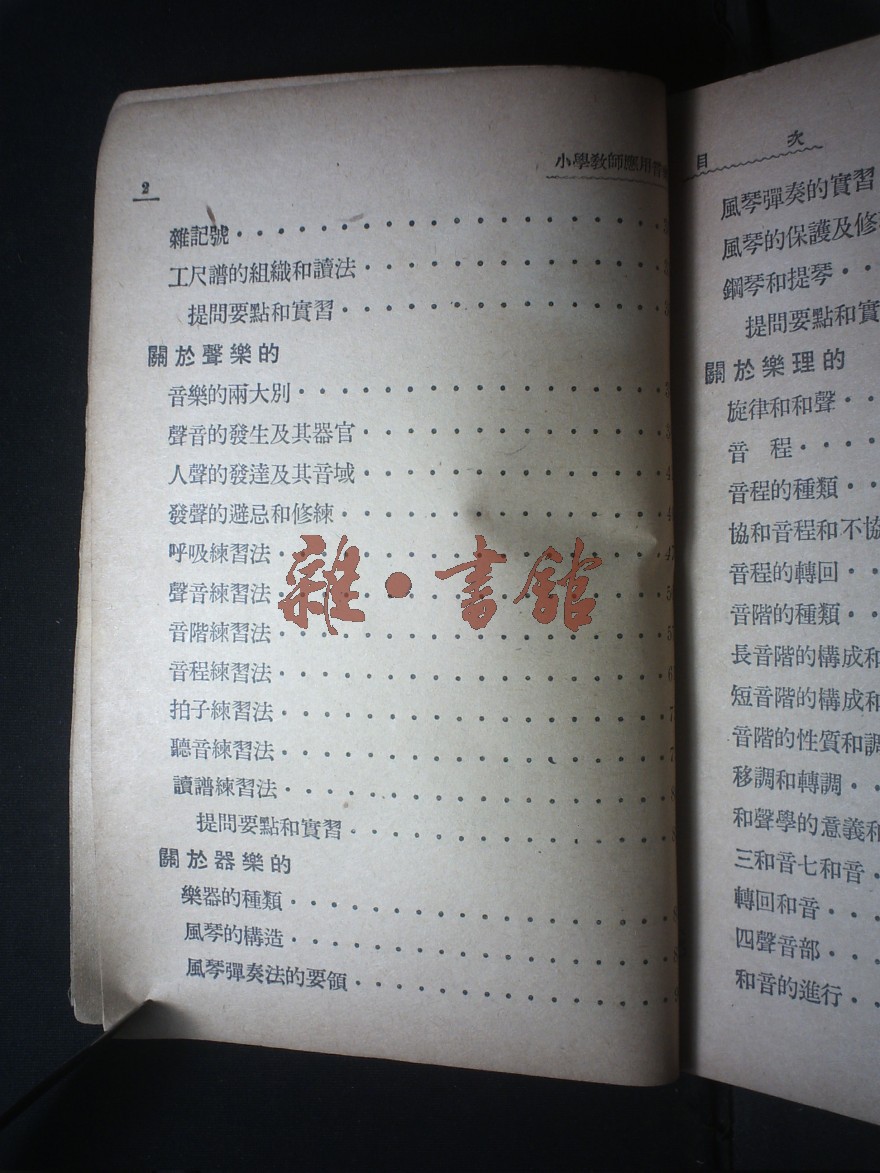 2
小學教師應用音
雜記號
工尺譜的組織和讀法
提問要點和實習
關於聲樂的
音樂的兩大別
聲音的發生及其器官
人聲的發達及其音域
發聲的避忌和修練
呼吸練習法 47
聲音練習法
音階練習法
音程練習法
拍子練習法
聽音練習法
讀譜練習法
提問要點和實習
關於器樂的
樂器的種類
風琴的構造
風琴彈奏法的要領
雜·書館
目次
風琴彈奏的實習
風琴的保護及修
鋼琴和提琴
提問要點和實
關於樂理的
旋律和和聲
音程
音程的種類
協和音程和不協
音程的轉回
音階的種類
長音階的構成和
短音階的構成和
音階的性質和調
移調和轉調
和聲學的意義和
三和音七和音
轉回和音
四聲音部
和音的進行